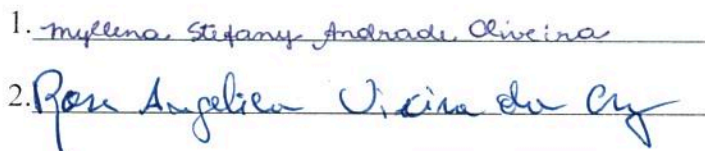 1. Myllena Stefany Andrade Oliveira
2. Rose Angelica Vieira da Cruz